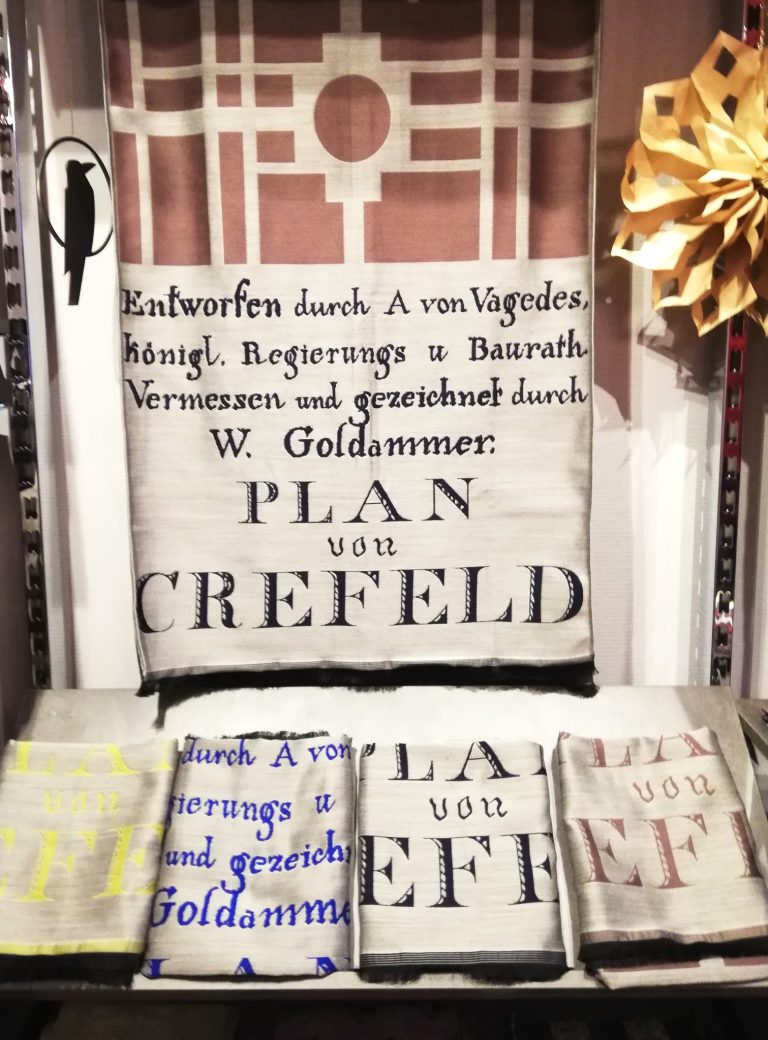 Entworfen durch A von Vagedes,
königl. Regierungs u Baurath.
Vermessen und gezeichnet durch
W. Goldammer.
PLAN
von
CREFELD
LAN
von
EFE
durch A von
gierungs u
und gezeich
Goldamme
LAN
PLA
von
EFE
LA
von
EFE